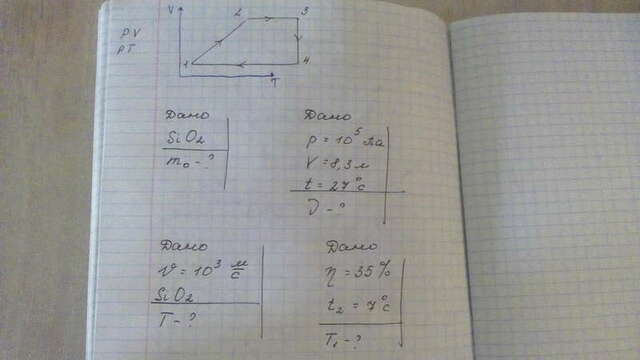 PV
PT
V
2
3
1
4
T
Дано
SiO₂
m₀ - ?
Дано
p = 10⁵ Па
V = 8,3 м
t = 27°c
ν - ?
Дано
v = 10³ м/с
SiO₂
T - ?
Дано
η = 35%
t₂ = 7°c
T₁ - ?